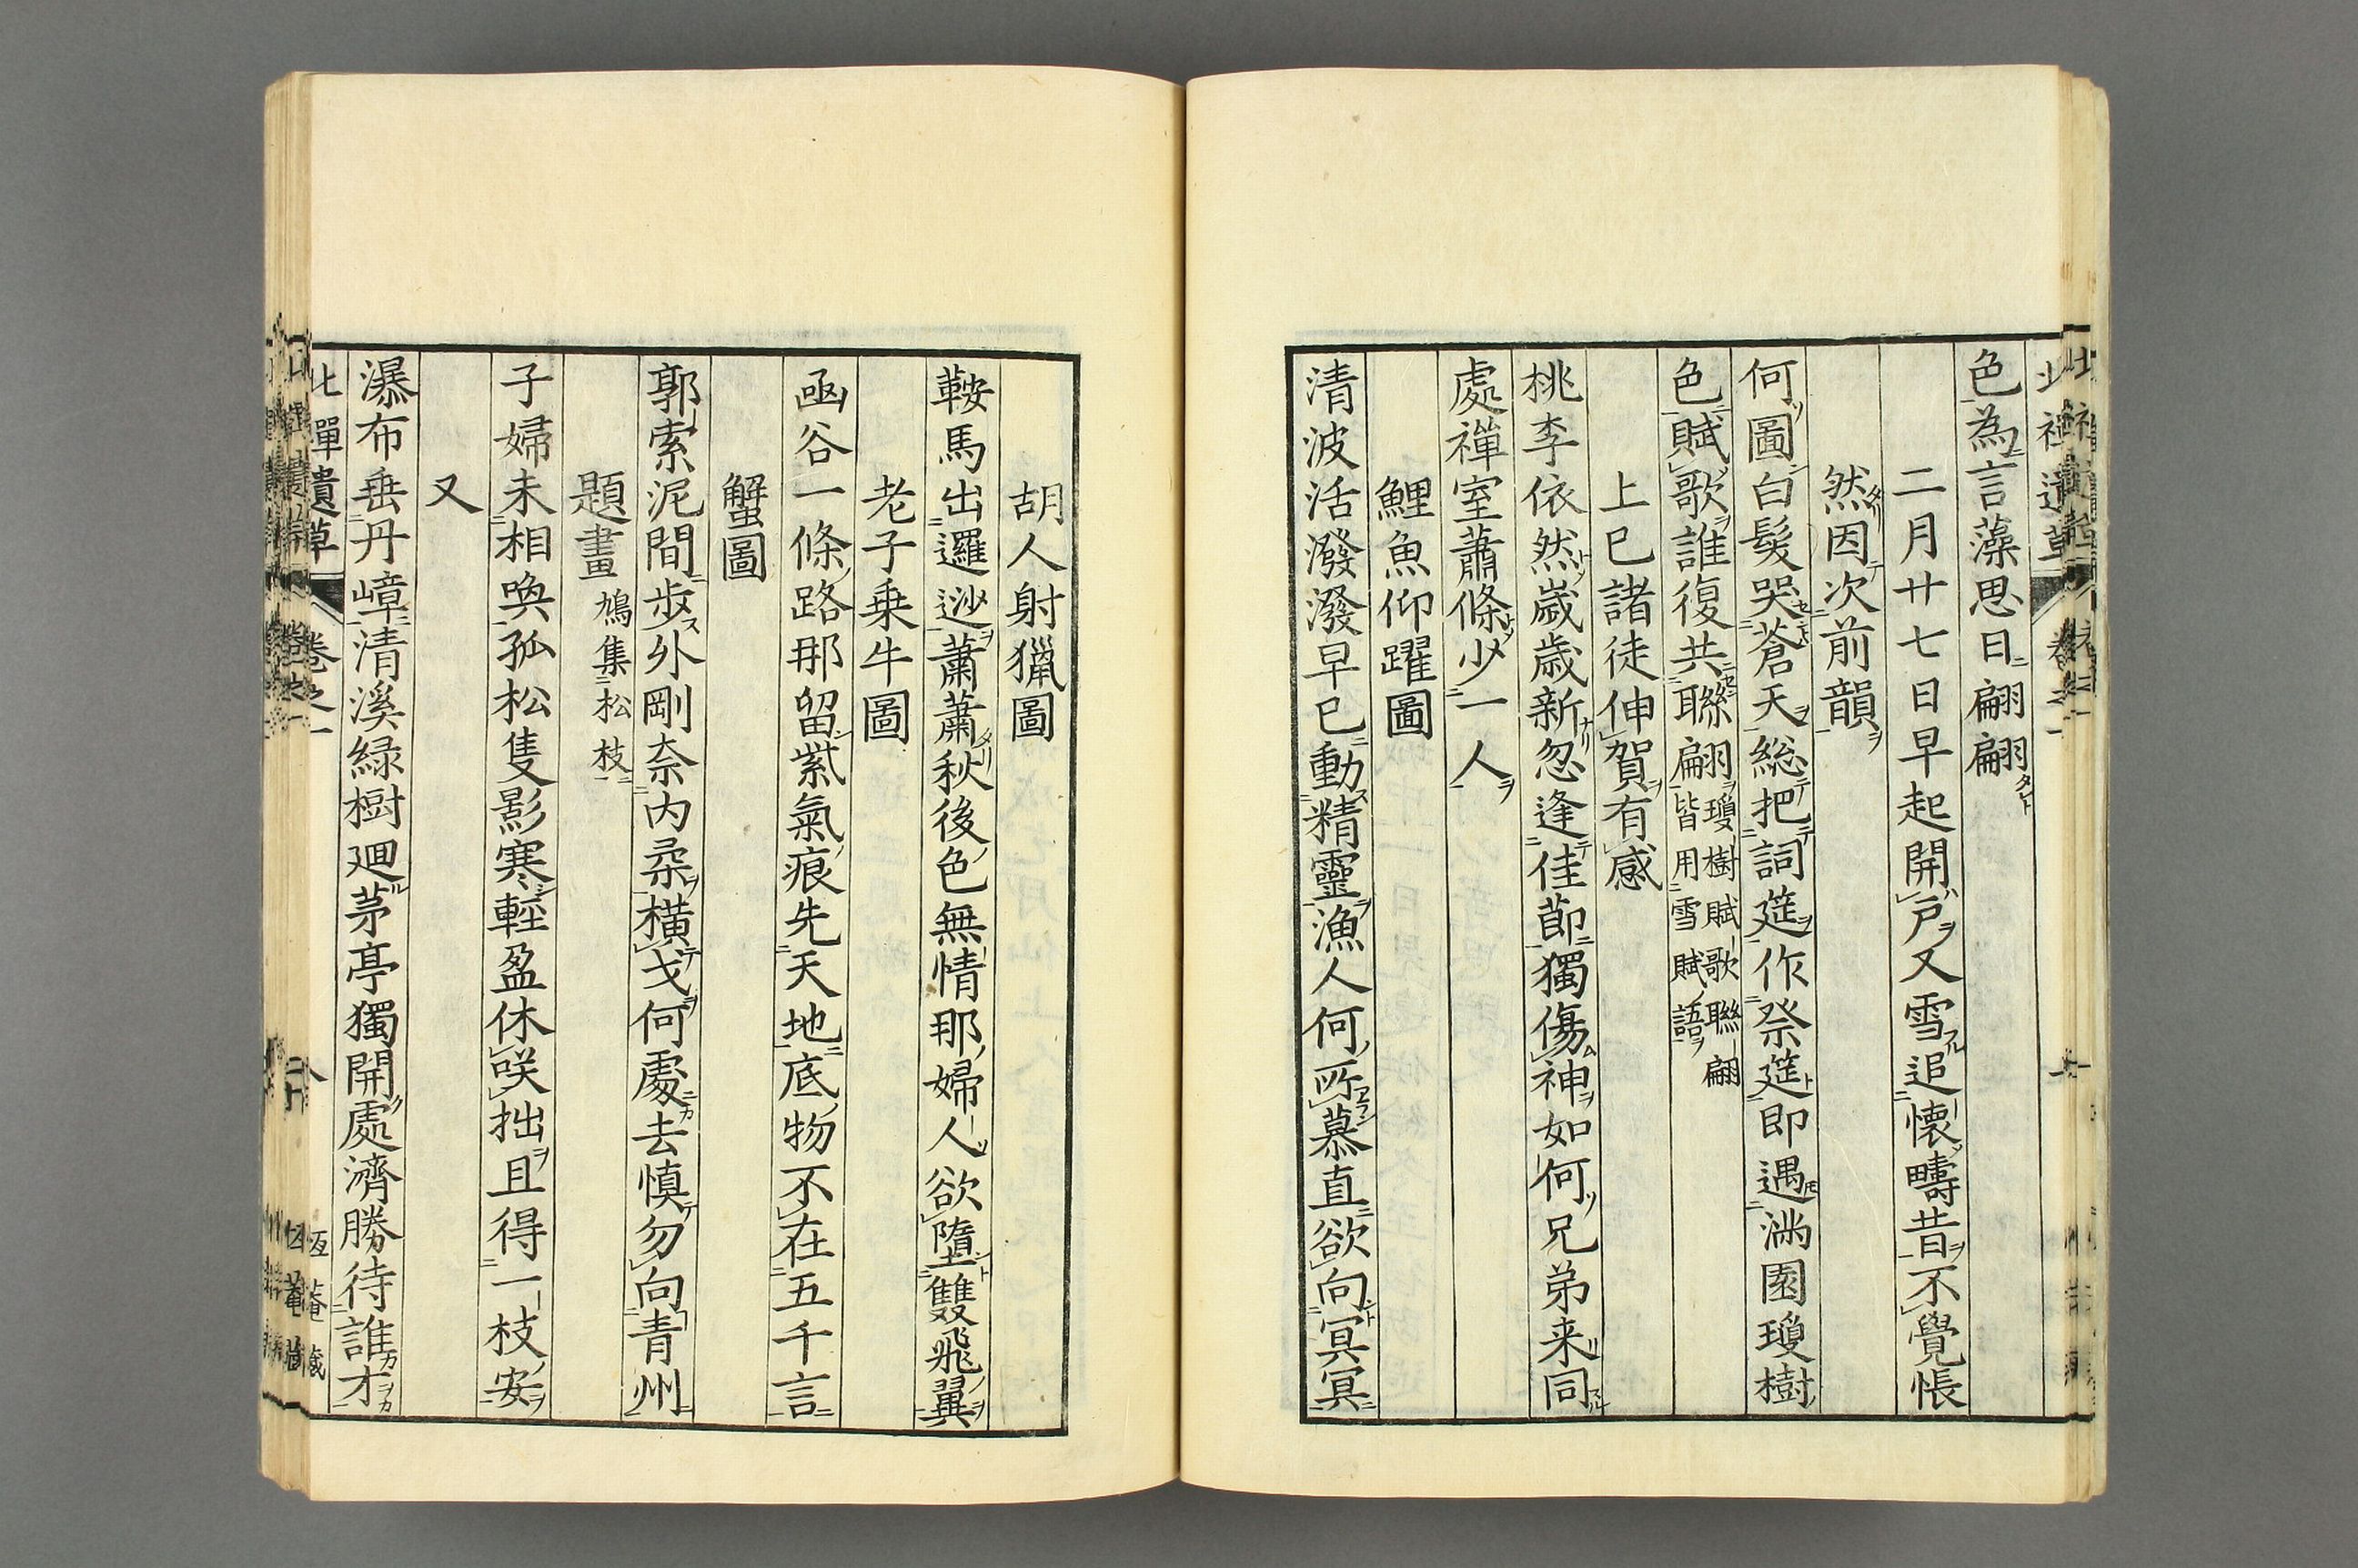 北禪遺草
色為言藻思日翩翩
二月廿七日早起開戶又雪追懷疇昔不覺悵
然因次前韻
何圖白髮哭蒼天総把詞筵作祭筵即遇滿園瓊樹
色賦歌誰復共聯翩瓊樹賦歌聯翩皆用雪賦語
上巳諸徒伸賀有感
桃李依然歳歳新忽逢佳節獨傷神如何兄弟来同
處禪室蕭條少一人
鯉魚仰躍圖
清波活潑潑早已動精靈漁人何所慕直欲向冥冥
胡人射獵圖
鞍馬出邏逤蕭蕭秋後色無情那婦人欲墮雙飛翼
老子乗牛圖
凾谷一條路那留紫氣痕先天地底物不在五千言
蟹圖
郭索泥間歩外剛奈内柔横戈何處去慎勿向青州
題畫鳩集松枝
子婦未相喚孤松隻影寒輕盈休咲拙且得一枝安
又
瀑布垂丹嶂清溪緑樹廻茅亭獨開處濟勝待誰才
北禪遺草 卷之一 恆菴藏